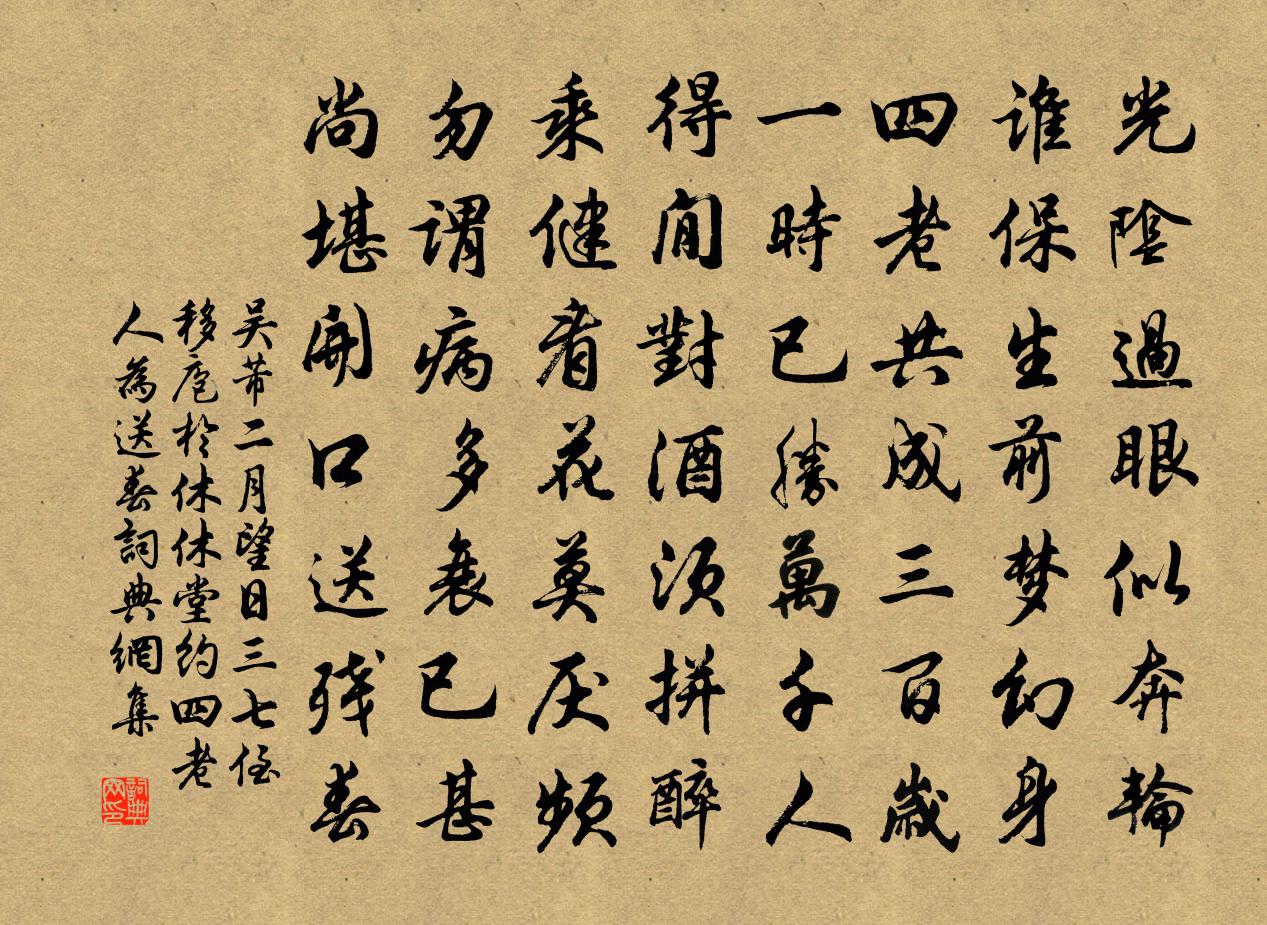 光陰過眼似奔輪
谁保生前梦幻身
四老共成三百歲
一時已勝萬千人
得閒對酒須拼醉
乘健看花莫厌頻
勿谓病多衰已甚
尚堪開口送残春
吴芾二月望日三七侄
移庖於休休堂约四老
人為送春詞典網集
詞典
网印